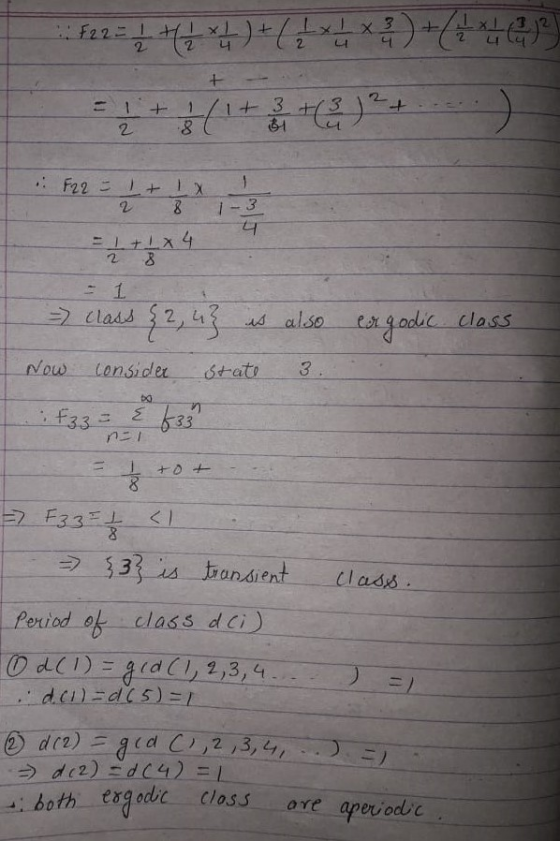 ∵ F22 = 1/2 + (1/2 × 1/4) + (1/2 × 1/4 × 3/4) + (1/2 × 1/4 (3/4)^2)
+ - -
= 1/2 + 1/8 (1 + 3/4 + (3/4)^2 + ......)
∴ F22 = 1/2 + 1/8 × 1/(1 - 3/4)
= 1/2 + 1/8 × 4
= 1
⇒ class {2, 4} is also ergodic class
Now consider state 3.
∵ F33 = ∞Σn=1 f33^n
= 1/8 + 0 + - - -
⇒ F33 = 1/8 < 1
⇒ {3} is transient class.
Period of class d(i)
① d(1) = gcd (1, 2, 3, 4 .... ) = 1
∴ d(1) = d(5) = 1
② d(2) = gcd (1, 2, 3, 4, ...) = 1
⇒ d(2) = d(4) = 1
∴ both ergodic class are aperiodic.